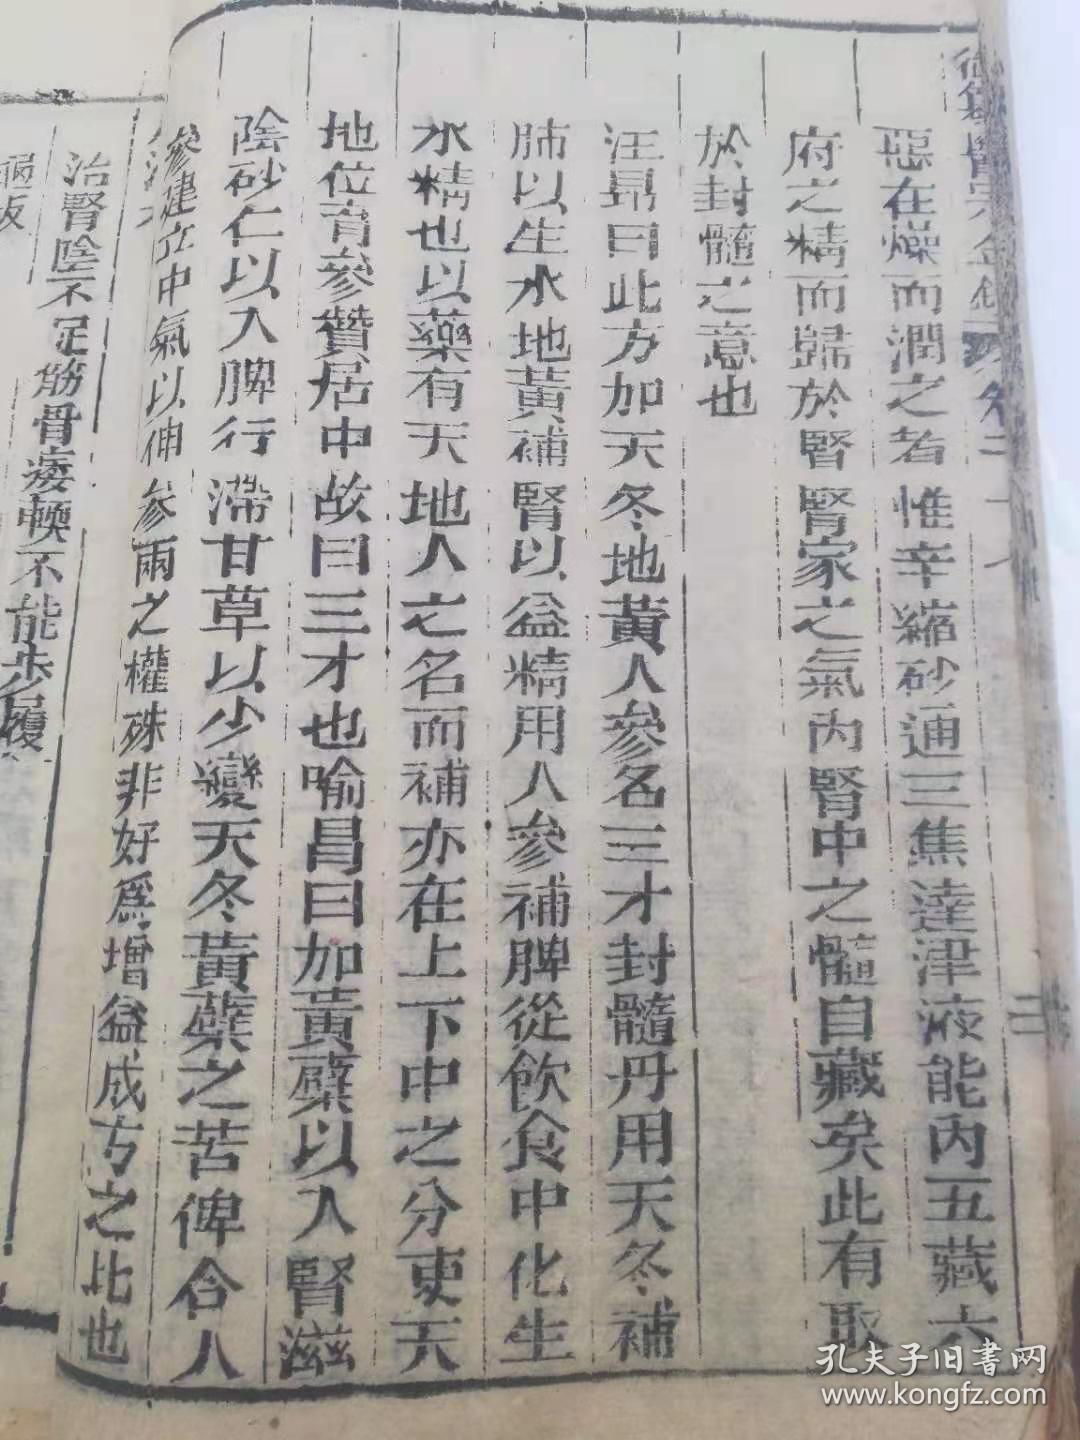 御纂醫宗金鑑 卷二十七
惡在燥而潤之者惟辛縮砂通三焦達津液能內五藏六
府之精而歸於腎腎家之氣內腎中之髓自藏矣此有取
於封髓之意也
汪昂曰此方加天冬地黃人參名三才封髓丹用天冬補
肺以生水地黃補腎以益精用人參補脾從飲食中化生
水精也以藥有天地人之名而補亦在上下中之分吏天
地位育參贊居中故曰三才也喻昌曰加黃蘗以入腎滋
陰砂仁以入脾行滯甘草以少變天冬黃蘗之苦俾合人
參建立中氣以伸參兩之權殊非好爲增益成方之比也
治腎陰不足筋骨痿軟不能步履
龜板
孔夫子旧書网
www.kongfz.com